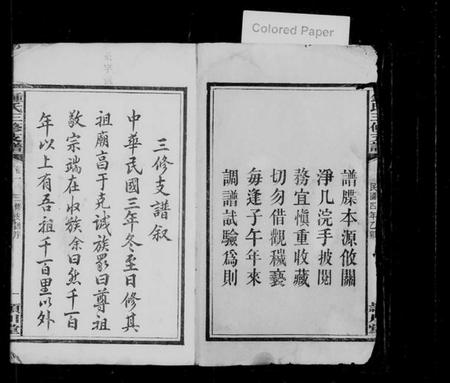 Colored Paper
譜牒本源攸關
淨几浣手披閱
務宜慎重收藏
切勿借觀穢褻
每逢子午年來
調譜試驗為則
三修支譜叙
中華民國三年冬至日修其
祖廟高于克誠族眾曰尊祖
敬宗端在收族余曰然千一百
年以上有吾祖千一百里以外
鍾氏三修支譜